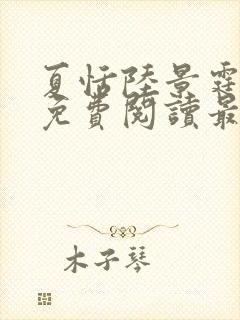 夏恬陸景霆
免費閱讀最
木子琴